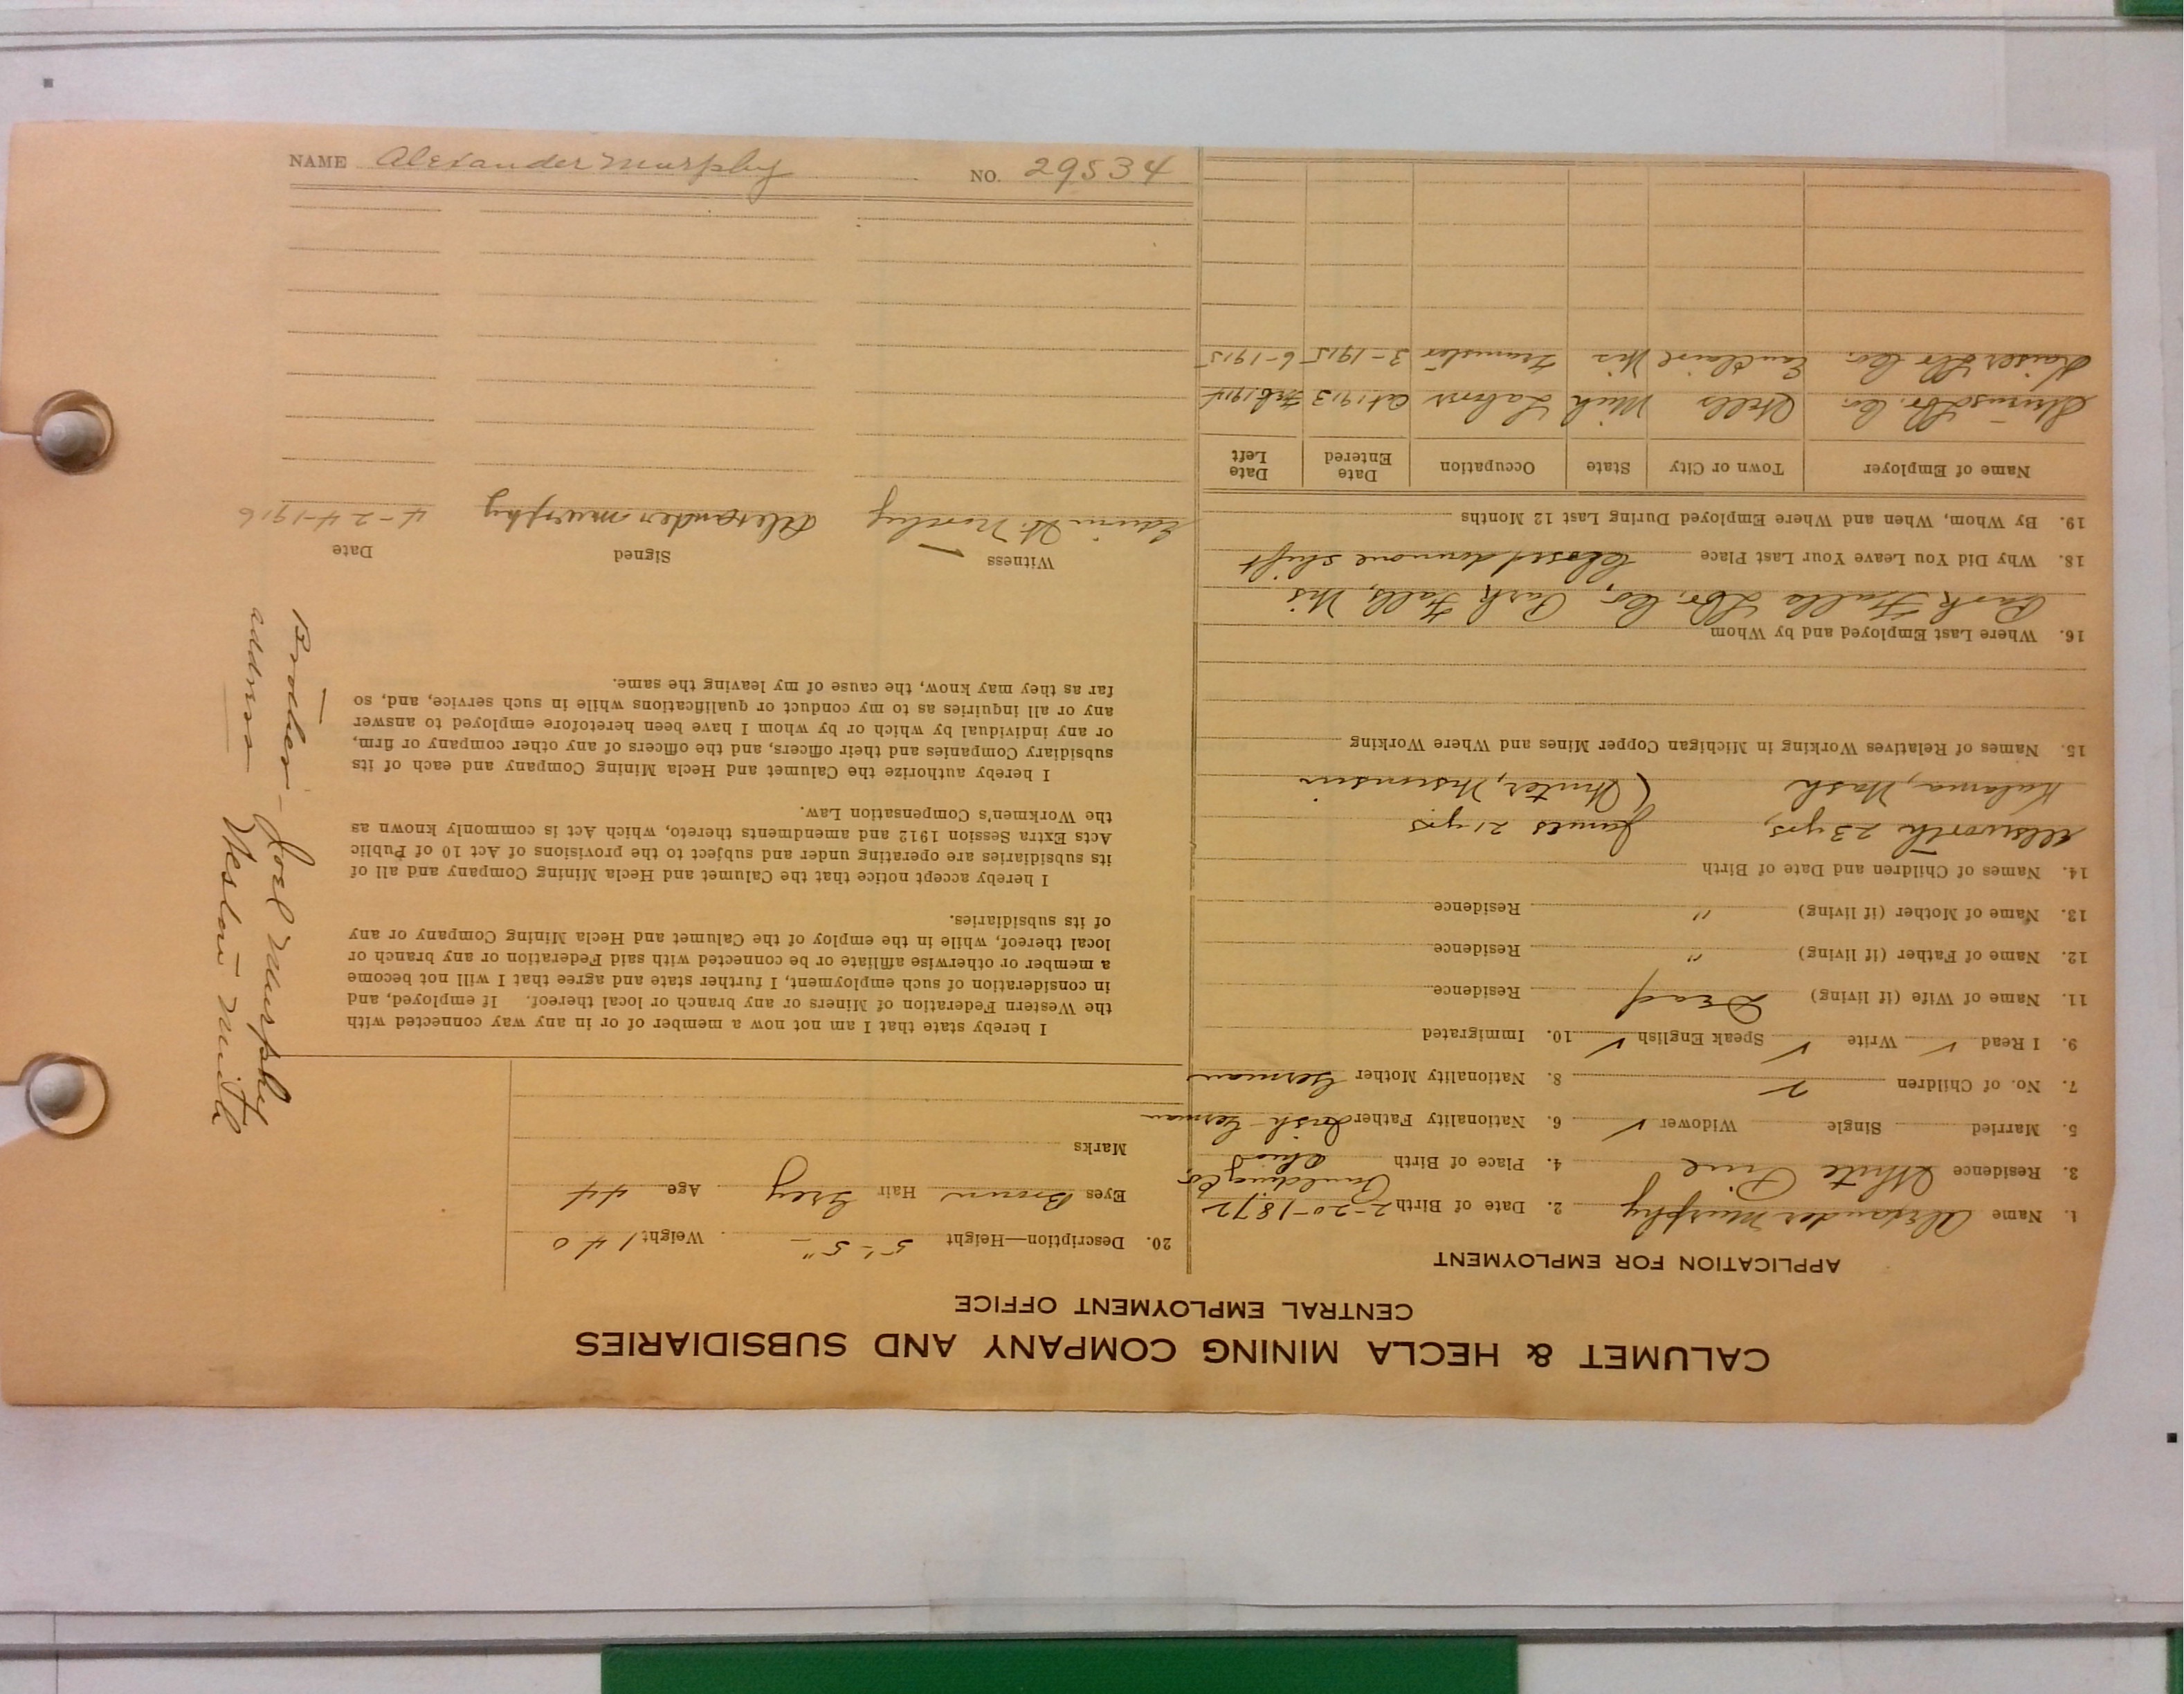 CALUMET & HECLA MINING COMPANY AND SUBSIDIARIES
CENTRAL EMPLOYMENT OFFICE
APPLICATION FOR EMPLOYMENT
1. Name Alexander Murphy 2. Date of Birth 2-20-1872
3. Residence White Pine 4. Place of Birth Paulding Co, Ohio
5. Married Single Widower ✓ 6. Nationality Father Irish-German
7. No. of Children 2 8. Nationality Mother German
9. I Read ✓ Write ✓ Speak English ✓ 10. Immigrated
11. Name of Wife (if living) Dead Residence
12. Name of Father (if living) " Residence
13. Name of Mother (if living) " Residence
14. Names of Children and Date of Birth
Allsworth 23 yrs, James 21 yrs
Kalama, Wash (Winter, Wisconsin
15. Names of Relatives Working in Michigan Copper Mines and Where Working
16. Where Last Employed and by Whom
Park Falls Lbr. Co, Park Falls, Wis
18. Why Did You Leave Your Last Place Closed down one shift
19. By Whom, When and Where Employed During Last 12 Months
Name of Employer Town or City State Occupation Date Entered Date Left
Lbr. Co. Wells Mich Labor Oct 1913 Feb. 1914
Kaiser Lbr Co. Eau Claire Wis Teamster 3-1915 6-1915
20. Description—Height 5'-5" Weight 140
Eyes Brown Hair Grey Age 44
Marks
I hereby state that I am not now a member of or in any way connected with
the Western Federation of Miners or any branch or local thereof. If employed, and
in consideration of such employment, I further state and agree that I will not become
a member or otherwise affiliate or be connected with said Federation or any branch or
local thereof, while in the employ of the Calumet and Hecla Mining Company or any
of its subsidiaries.
I hereby accept notice that the Calumet and Hecla Mining Company and all of
its subsidiaries are operating under and subject to the provisions of Act 10 of Public
Acts Extra Session 1912 and amendments thereto, which Act is commonly known as
the Workmen's Compensation Law.
I hereby authorize the Calumet and Hecla Mining Company and each of its
subsidiary Companies and their officers, and the officers of any other company or firm,
or any individual by which or by whom I have been heretofore employed to answer
any or all inquiries as to my conduct or qualifications while in such service, and, so
far as they may know, the cause of my leaving the same.
Witness Signed Date
Edwin H. Alexander Murphy 4-24-1916
Brother - Joel Murphy
address
NAME Alexander Murphy NO. 29534